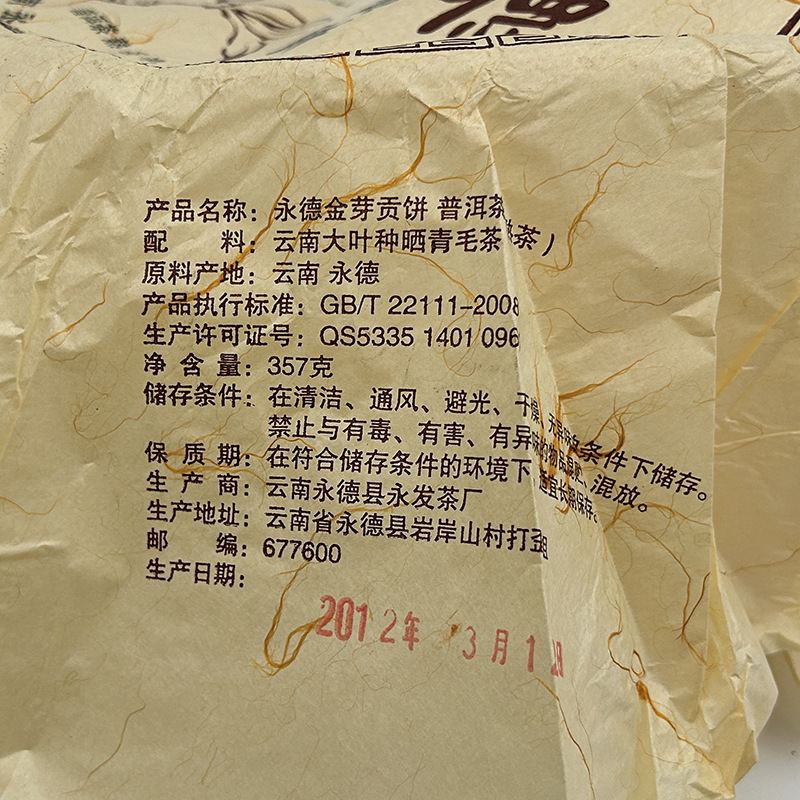 产品名称：永德金芽贡饼 普洱茶
配 料：云南大叶种晒青毛茶 茶）
原料产地：云南 永德
产品执行标准：GB/T 22111-2008
生产许可证号：QS5335 1401 096
净 含 量：357克
储存条件：在清洁、通风、避光、干燥、无异味条件下储存。
禁止与有毒、有害、有异味的物品 混放。
保 质 期：在符合储存条件的环境下 适宜长期保存。
生 产 商：云南永德县永发茶厂
生产地址：云南省永德县岩岸山村打
邮 编：677600
生产日期：
2012年 3月1日